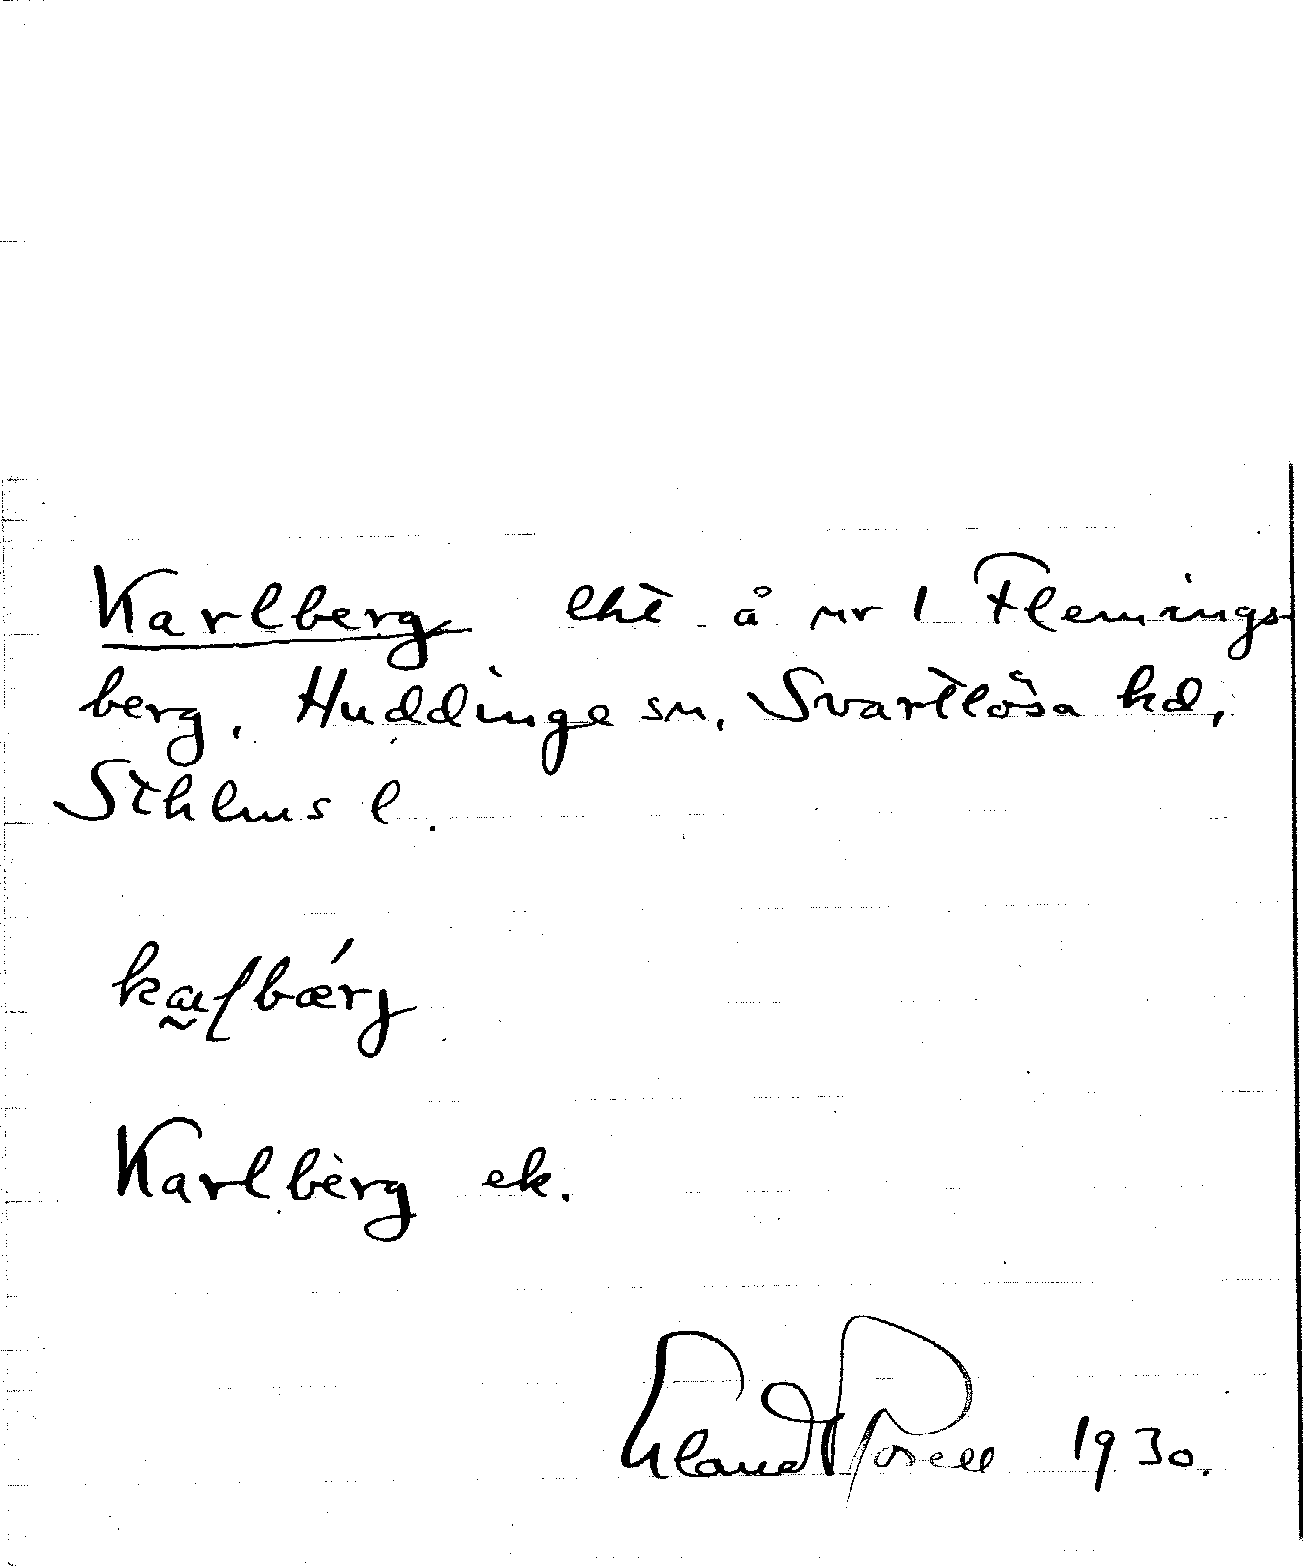 Karlberg lht å nr 1 Flemings-
berg, Huddinge sn, Svartlösa hd,
Sthlms l.
Karlberg ek.
Erland Rosell 1930.